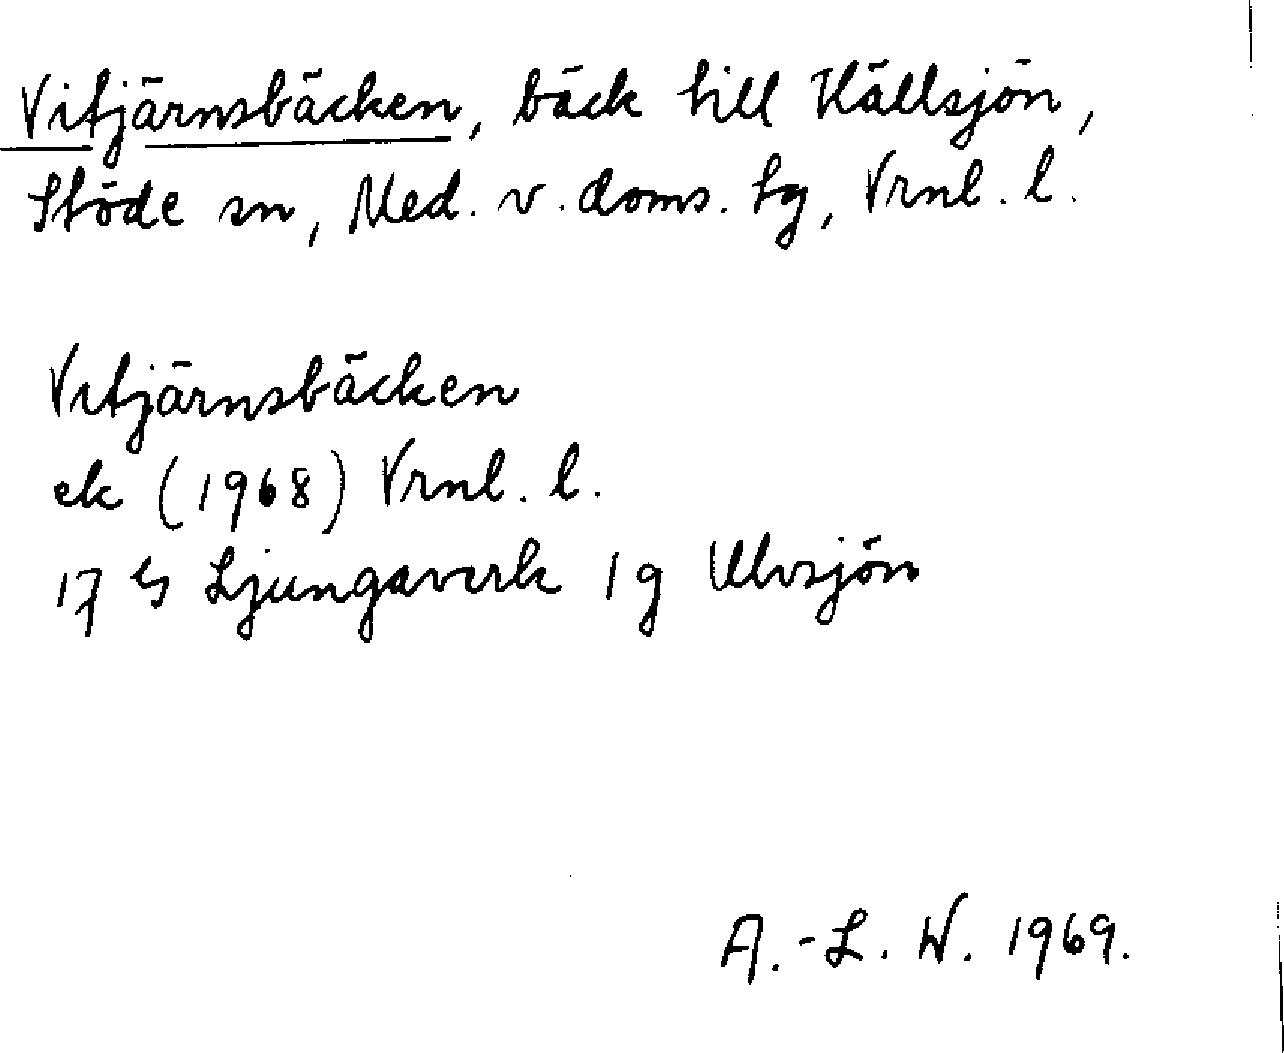 Vitjärnsbäcken, bäck till Källsjön,
Stöde sn, Med. v. doms. tg, Vrnl. l.
Vitjärnsbäcken
ek (1968) Vrnl. l.
17 G Ljungaverk 1 g Ulvsjön
A.-L. W. 1969.